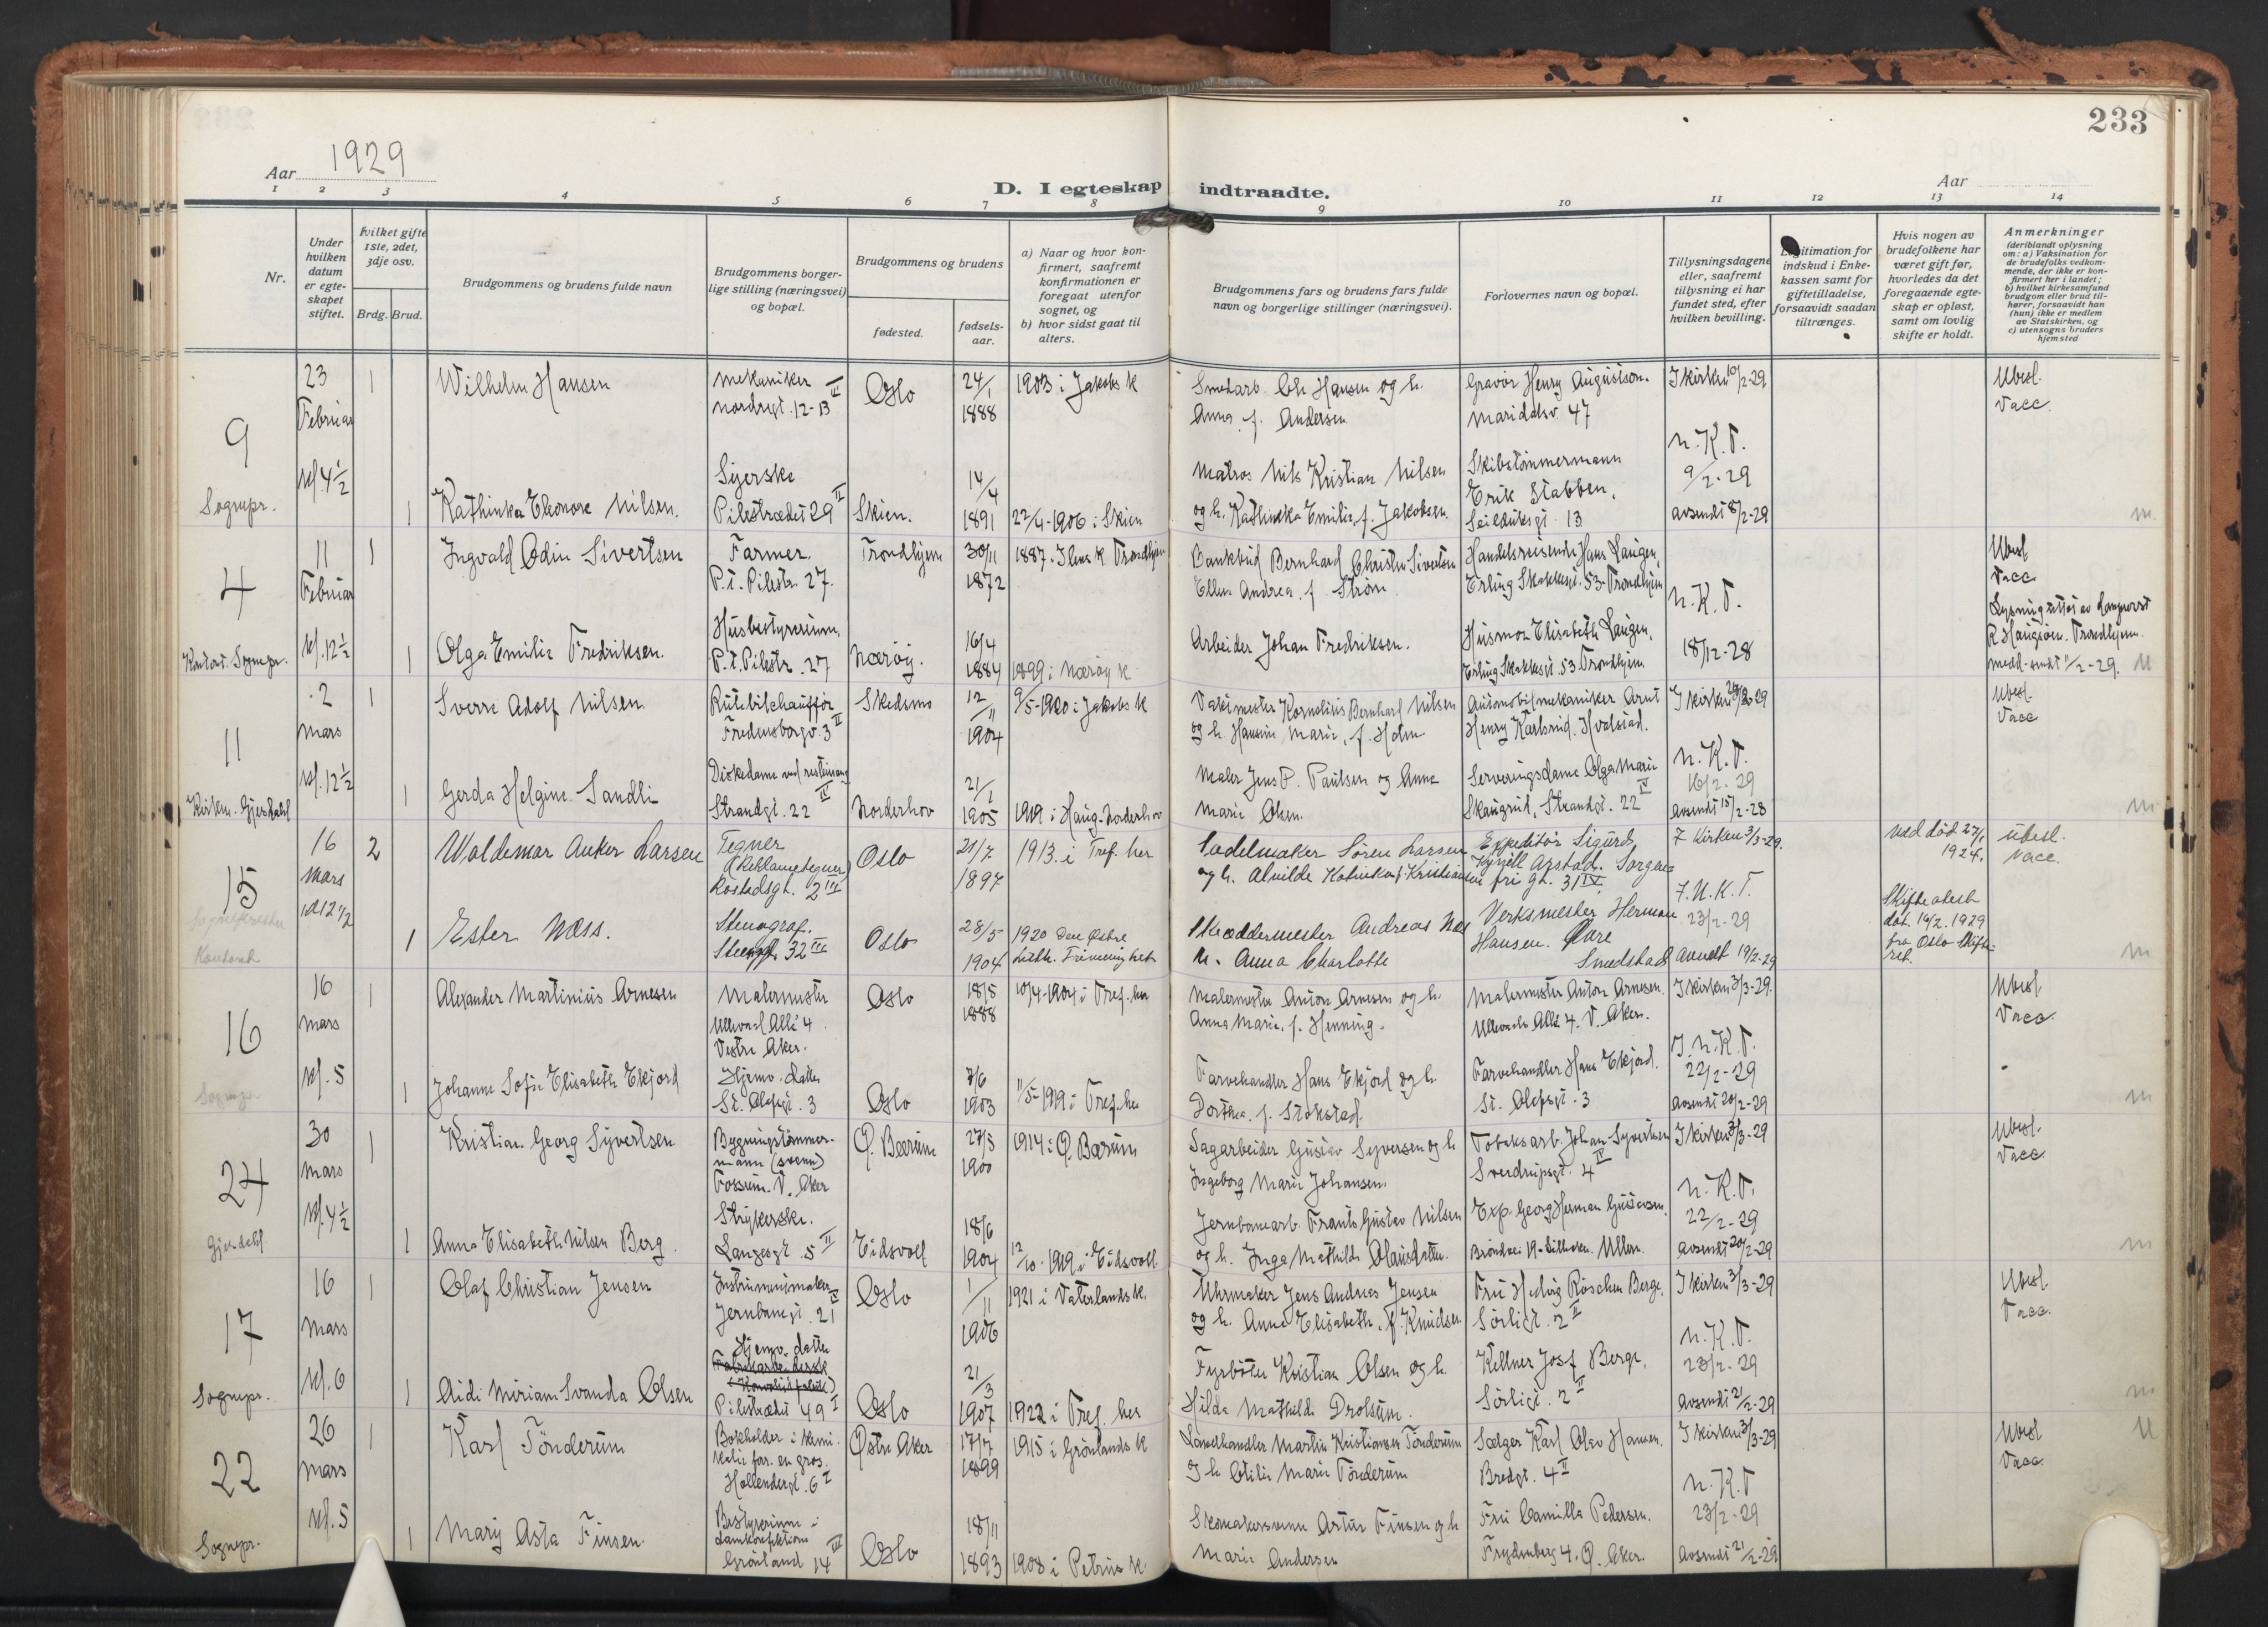 233
Aar 1929
D. I egteskap indtraadte.
Aar
1 2 3 4 5 6 7 8 9 10 11 12 13 14
Nr.
Under hvilken datum er egteskapet stiftet.
Hvilket gifte 1ste, 2det, 3dje osv.
Brdg. Brud.
Brudgommens og brudens fulde navn
Brudgommens borgerlige stilling (næringsvei) og bopæl.
Brudgommens og brudens
fødested.
fødselsaar.
a) Naar og hvor konfirmert, saafremt konfirmationen er foregaat utenfor sognet, og
b) hvor sidst gaat til alters.
Brudgommens fars og brudens fars fulde navn og borgerlige stillinger (næringsvei).
Forlovernes navn og bopæl.
Tillysningsdagene eller, saafremt tillysning ei har fundet sted, efter hvilken bevilling.
Legitimation for indskud i Enkekassen samt for giftetilladelse, forsaavidt saadan tiltrænges.
Hvis nogen av brudefolkene har været gift før, hvorledes da det foregaaende egteskap er opløst, samt om lovlig skifte er holdt.
Anmerkninger
(deriblandt oplysning om: a) Vaksination for de brudefolks vedkommende, der ikke er konfirmert her i landet;
b) hvilket kirkesamfund brudgom eller brud tilhører, forsaavidt han (hun) ikke er medlem av Statskirken, og
c) utensogns bruders hjemsted
9 Sognepr.
23 Februar kl 4½
1 Wilhelm Hansen
Mekaniker Nordregt. 12-13 III
Oslo 24/1 1888
1903 i Jakobs K
Smedarb. Chr Hansen og h. Anna f. Andersen
Gravør Henry Augustson. Maridalsv. 47
I kirken 10/2-29
Ubesl. Vacc.
1 Kathinka Eleonore Nilsen.
Syerske Pilestrædet 29 II
Skien. 14/4 1891
22/4-1906 i Skien
Matros Nils Kristian Nilsen og h. Kathinka Emilie, f. Jakobsen.
Skibstømmermann Erik Stabben, Seilduksgt 13
N.K.T. 9/2-29 avsendt 8/2-29
m.
4 Kontoret. Sognepr.
11 Februar kl. 12½
1 Ingvald Odin Sivertsen
Farmer. P.t. Pilestr. 27.
Trondhjem 30/11 1872
1887. Ilens K Trondhjem
Bankbud Bernhard Christen Sivertsen Ellen Andrea, f Strøm
Handelsreisende Hans Laugen, Erling Skakkesgt. 53 Trondhjem
Ubesl Vacc
1 Olga Emilie Fredriksen.
Husbestyrerinne, P.t. Pilestr. 27
Nærøy. 16/4 1884
1899 i Nærøy K
Arbeider Johan Fredriksen.
Husmor Elisabeth Laugen, Erling Skakkesgt 53 Trondhjem
N.K.T. 18/12-28
Trondhjem.
11 Kirken. Gjerdahl
2 Mars kl. 12½
1 Sverre Adolf Nilsen
Rutebilchauffør Fredensborgv. 3 II
Skedsmo 12/11 1904
9/5-1920 i Jakobs K
Vaktmester Kornelius Bernhard Nilsen og h. Hansine Marie, f. Holm
Automobilmekaniker Arnt Henry Karlsrud. Hvalstad.
I kirken
Ubesl. Vacc
1 Gerda Helgine Sandli
Strandgt. 22 IV
Norderhov 21/1 1905
1919 i Haug-Norderhov
Maler Jens P. Paulsen og Anna Marie Olsen.
Serveringsdame Olga Marie Skaugrud, Strandgt. 22 IV
N.K.T. 16/2-29 avsendt 15/2-28
m
15 Sognepresten Kontoret
16 Mars kl 12½
2 Waldemar Anker Larsen
Tegner (Reklametegner) Rostedsgt. 2 III
Oslo 21/7 1897
1913. i Tref. her
Sadelmaker Søren Larsen og h. Alvilde Katinka f. Kristiansen
Expeditør Sigurd Kjyjell Arstad. Sorgenfri gt. 31 IV.
I kirken 3/3-29.
ved død 27/1 1924.
ubesl. vacc.
1 Ester Næss.
Stenograf. Steensgt. 32 III
Oslo 28/5 1904
1920 Den Østre Luth. Frimenighet
Skreddermester Andreas Næs h. Anna Charlotte
Verksmester Herman Hansen. Øvre Smedstad
F.N.K.T. 23/2-29 avsendt 19/2-29
Skifteatest dat. 16/2 1929 fra Oslo Skifteret.
m
16 Sognepr
16 Mars kl. 5
1 Alexander Martinius Arnesen
Malermester Ullevaal Allé 4. Vestre Aker.
Oslo 18/8 1888
10/4-1904 i Tref. her
Malermester Anton Arnesen og h. Anna Marie, f. Henning.
Malermester Anton Arnesen. Ullevaals Allé 4. V. Aker.
I kirken 3/3-29.
Ubesl. Vacc.
1 Johanne Sofie Elisabeth Ekjord
Hjemv. datter St. Olafsgt. 3
Oslo 7/6 1903
11/5-1919 i Tref. her
Farvehandler Hans Ekjord og h. Dorthea, f. Stokstad.
Farvehandler Hans Ekjord. St. Olafsgt. 3
I.N.K.T. 22/2-29 avsendt 20/2-29
m
24 Gjerdahl.
30 Mars kl. 4½
1 Kristian Georg Syvertsen
Bygningstømmermann (svenn) Fossum. V. Aker
Ø. Bærum 27/5 1900
1914 i Ø. Bærum
Sagarbeider Gustav Syversen og h Ingeborg Marie Johansen.
Tobaksarb. Johan Syvertsen Sverdrupsgt. 4 IV
I kirken 3/3-29
Ubesl. Vacc
1 Anna Elisabeth Nilsen Berg.
Strykerske. Langesgt. 5 II
Eidsvoll 18/6 1904
12/10-1919 i Eidsvoll
Jernbanearb. Frants Gustav Nilsen og h. Inga Mathilde Olausdatter.
Exp. Georg Herman Gustavsen,
N.K.T. 22/2-29 avsendt 20/2-29
m
17 Sognepr.
16 Mars kl. 6
1 Olaf Christian Jensen
Instrumentmaker Jernbanegt. 21 IV
Oslo 1/11 1906
1921 i Vaterlands K.
Uhrmaker Jens Andreas Jensen og h. Anna Elisabeth, f. Knudsen
Fru Hedvig Røschen Berge, Sørligt. 2 II
I kirken 3/3-29
Ubesl. Vacc.
1 Aidi Miriam Svanda Olsen
Hjemv. datter Pilestrædet 49 I
Oslo 21/3 1907
1922 i Tref. her
Fyrbøter Kristian Olsen og h. Hilda Mathilde Drolsum.
Kellner Josef Berge, Sørligt. 2 II
N.K.T. 23/2-29 avsendt 21/2-29
m
22 Sognepr.
26 Mars kl. 5
1 Karl Tønderum
Bokholder i kemikalie for. en gros. Hollendergt. 6 I
Østre Aker 17/7 1899
1915 i Grønlands K
Landhandler Martin Kristiansen Tønderum og h Otilie Marie Tønderum
Sælger Karl Olav Hansen. Bredgt. 4 II
I kirken 3/3-29
Ubesl Vacc.
1 Mary Asta Finsen.
Bestyrerinne i damkonfektion Grønland 14 III
Oslo 18/11 1893
1908 i Petrus K.
Skomakersvenn Artur Finsen og h Marie Andersen
Fru Camilla Pedersen. Frydenberg 4. Ø. Aker.
N.K.T 23/2-29 avsendt 21/2-29